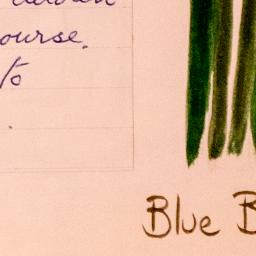 ourse.
to
Blue B